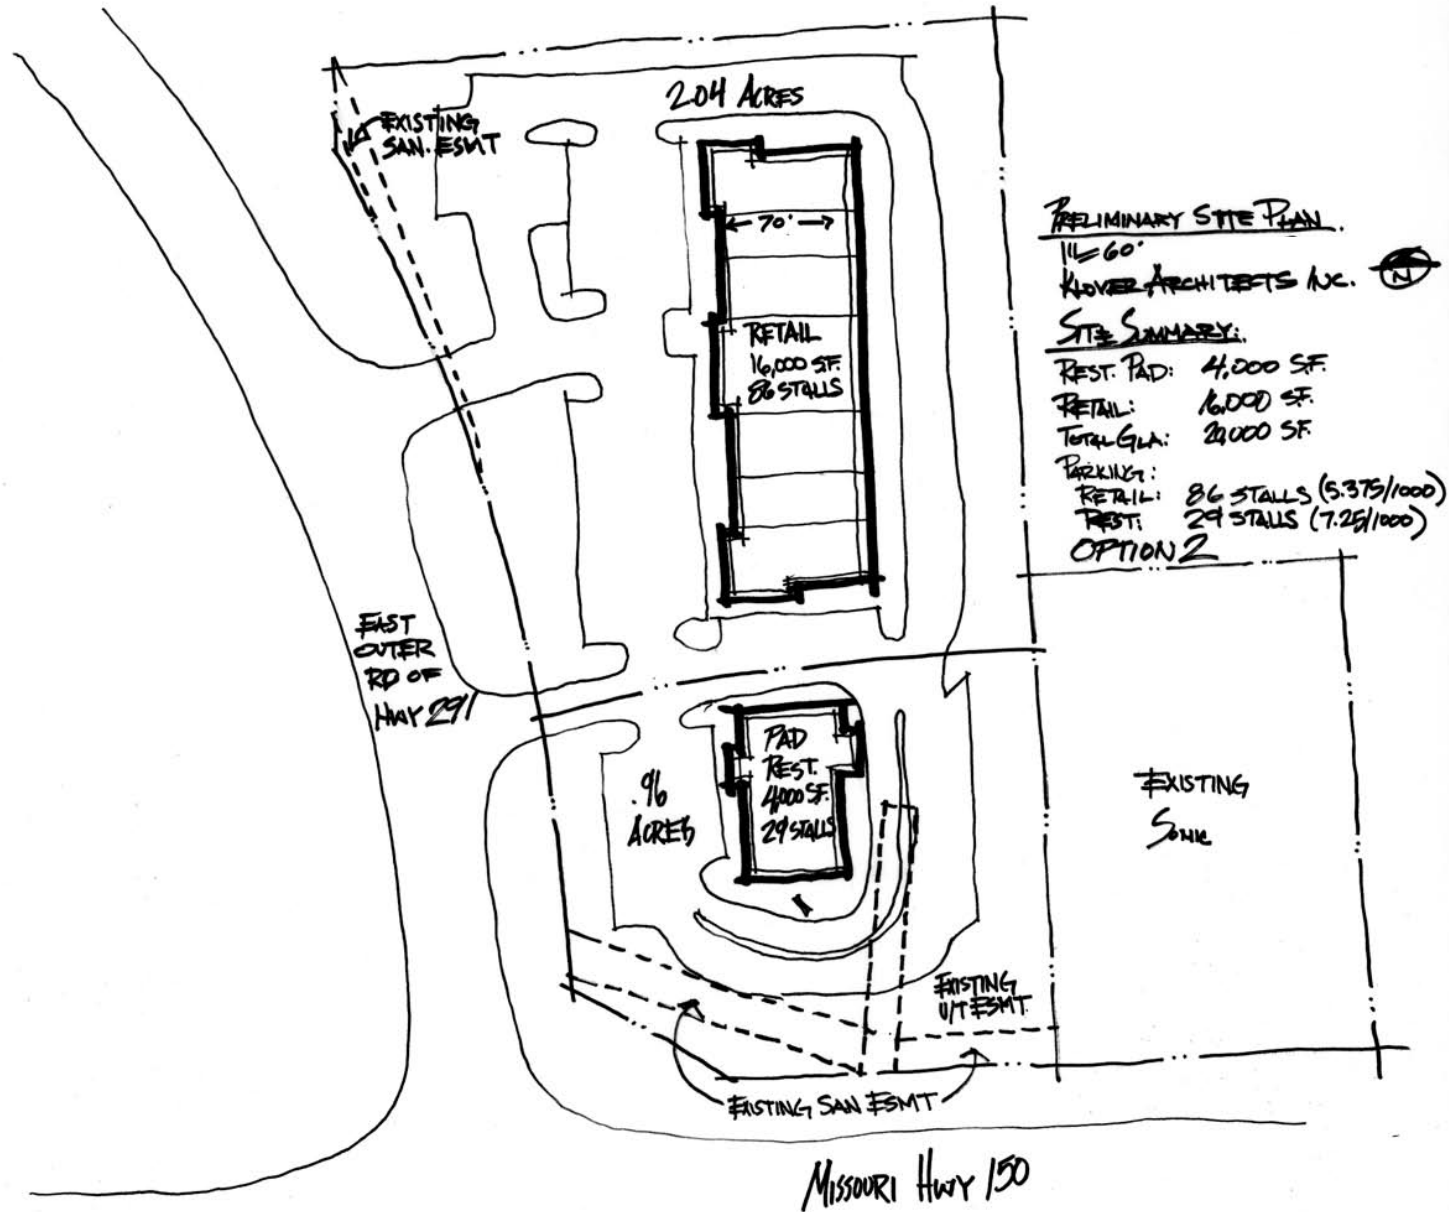 2.04 ACRES
EXISTING
SAN. ESMT
70'
RETAIL
16,000 SF.
86 STALLS
PRELIMINARY SITE PLAN
1"=60'
KLOVER ARCHITECTS INC.
N
SITE SUMMARY:
REST. PAD: 4,000 SF.
RETAIL: 16,000 SF.
TOTAL GLA: 20,000 SF.
PARKING:
RETAIL: 86 STALLS (5.375/1000)
REST: 29 STALLS (7.25/1000)
OPTION 2
EAST
OUTER
RD OF
HWY 291
PAD
REST.
4,000 SF.
29 STALLS
.96
ACRES
EXISTING
SONIC
EXISTING
U/T ESMT
EXISTING SAN ESMT
MISSOURI HWY 150